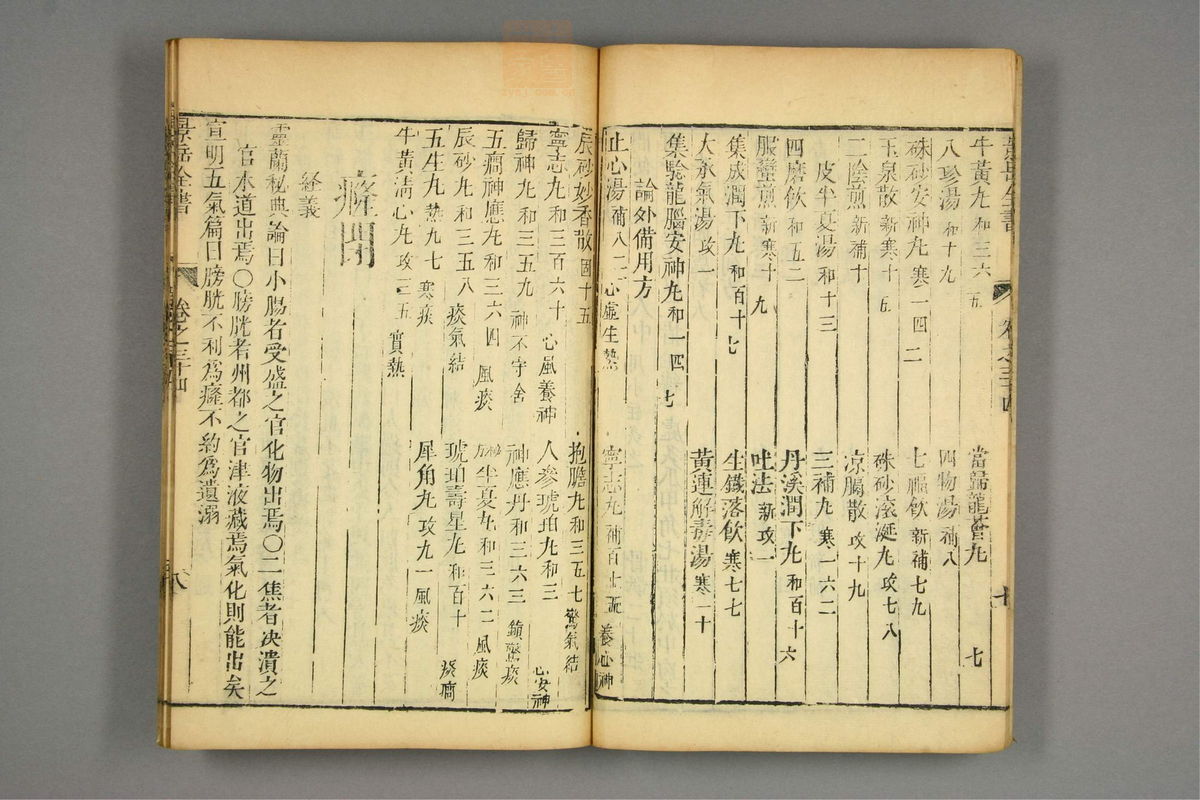 景岳全書 卷之三十四 七
牛黃丸 和三六五 當歸龍薈丸 七
八珍湯 和十九 四物湯 補八
硃砂安神丸 寒一四二 七福飲 新補七九
玉泉散 新寒十五 硃砂滚涎丸 攻七八
二陰煎 新補十 凉膈散 攻十九
皮半夏湯 和十三 三補丸 寒一六二
四磨飲 和五二 丹溪潤下丸 和百十六
服蠻煎 新寒十九 吐法 新攻一
集成潤下丸 和百十七 生鐵落飲 寒七七
大承氣湯 攻一 黃連解毒湯 寒一
集騐龍腦安神丸 和一四七
論外備用方
止心湯 補八二 心虛生熱 寧志丸 補百十五 養心神
辰砂妙香散 固十五 抱膽丸 和三五七 驚氣結
寧志丸 和三百六十 心風養神 人參琥珀丸 和三 心安神
歸神丸 和三五九 神不守舍 神應丹 和三六三 鎮驚痰
五癎神應丸 和三六四 風痰 半夏丸 和三六二 風痰
辰砂丸 和三五八 痰氣結 琥珀壽星丸 和百十 痰癎
五生丸 熱九七 寒痰 犀角丸 攻九一 風痰
牛黃清心丸 攻二五 實熱
癃閉
經義
靈蘭秘典論曰小腸者受盛之官化物出焉〇三焦者决瀆之
官水道出焉〇膀胱者州都之官津液藏焉氣化則能出矣
宣明五氣篇曰膀胱不利爲癃不約爲遺溺
景岳全書 卷之三十四 八